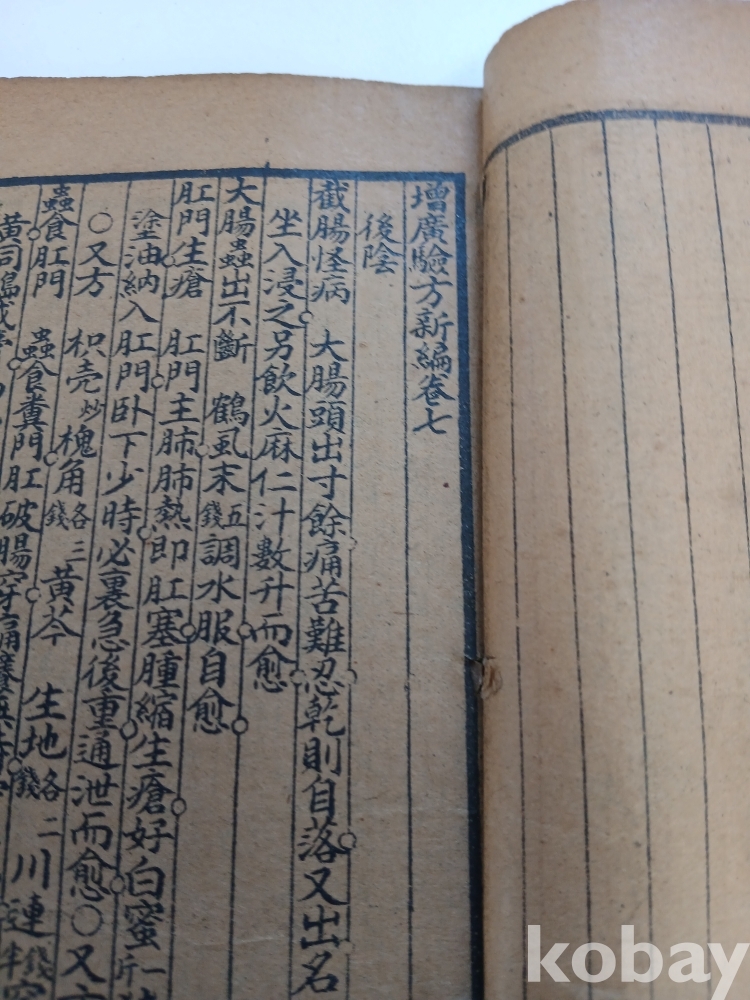 增廣驗方新編卷七
後陰
截腸怪病 大腸頭出寸餘痛苦難忍乾則自落又出名
坐入浸之另飲火麻仁汁數升而愈
大腸蟲出不斷 鶴虱末五錢調水服自愈
肛門生瘡 肛門主肺肺熱即肛塞腫縮生瘡好白蜜一
塗油納入肛門卧下少時必裏急後重通泄而愈〇又
〇又方 枳壳炒槐角各三錢黃芩 生地各二錢川連
蟲食肛門 蟲食糞門肛破腸穿痛癢
kobay